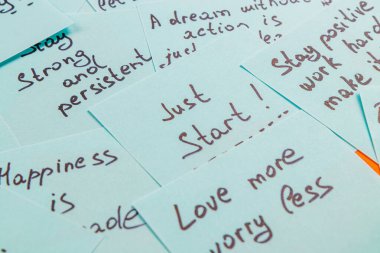 Stay
Strong
and
persistent
A dream without
action is
just
Stay positive
work hard
make it
Just
Start!
Happiness
is
Love more
worry less